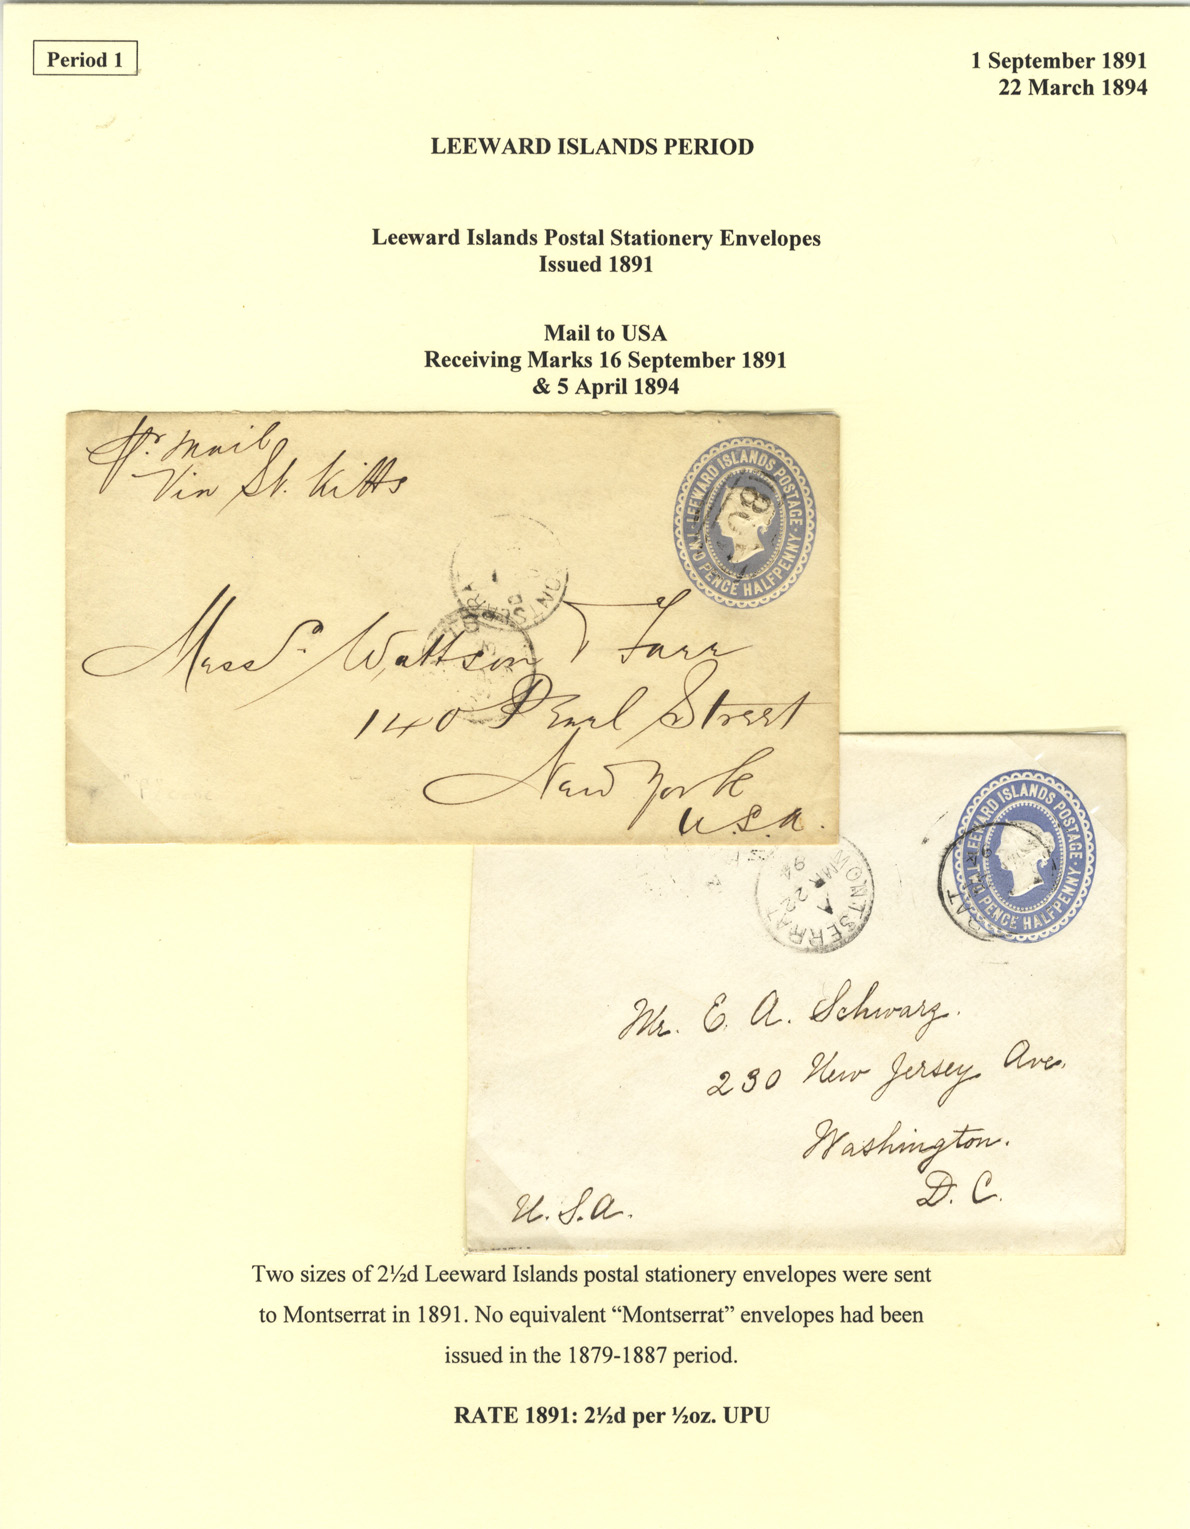 Period 1
1 September 1891
22 March 1894
LEEWARD ISLANDS PERIOD
Leeward Islands Postal Stationery Envelopes
Issued 1891
Mail to USA
Receiving Marks 16 September 1891
& 5 April 1894
Pr. Mail
Via St. Kitts
LEEWARD ISLANDS POSTAGE
TWO PENCE HALFPENNY
MONTSERRAT
Messrs. Wattson & Farr
140 Pearl Street
New York
U.S.A.
LEEWARD ISLANDS POSTAGE
PENCE HALFPENNY
MONTSERRAT
A
MAR 22
94
Mr. E. A. Schwarz.
230 New Jersey Ave.
Washington.
D. C.
U. S. A.
Two sizes of 2½d Leeward Islands postal stationery envelopes were sent
to Montserrat in 1891. No equivalent “Montserrat” envelopes had been
issued in the 1879-1887 period.
RATE 1891: 2½d per ½oz. UPU